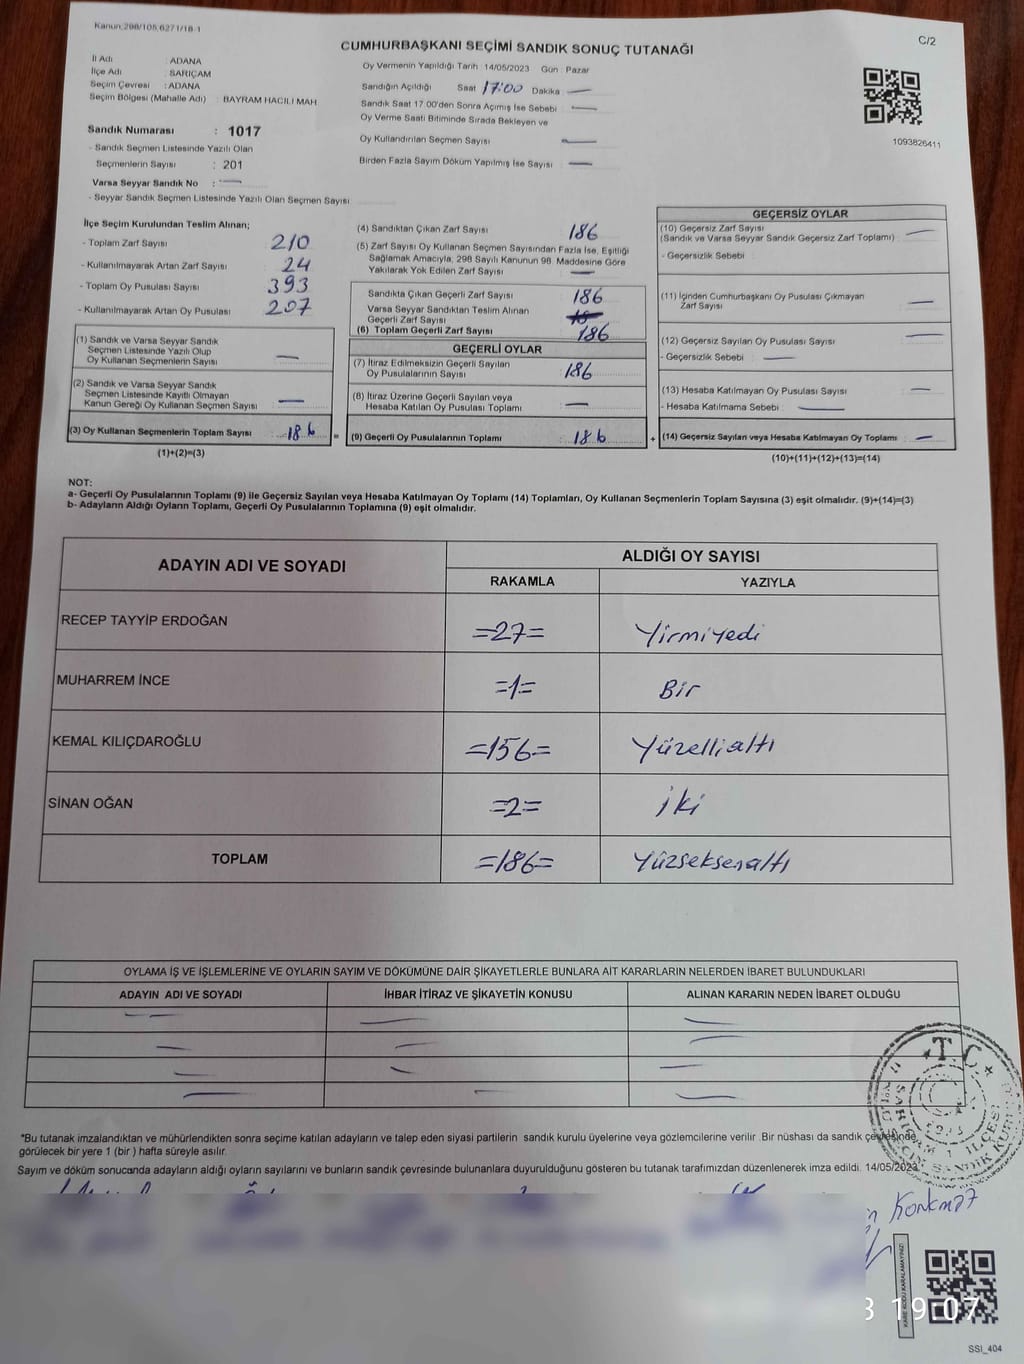 Kanun:298/105,6271/18-1
C/2
CUMHURBAŞKANI SEÇİMİ SANDIK SONUÇ TUTANAĞI
İl Adı : ADANA
İlçe Adı : SARIÇAM
Seçim Çevresi : ADANA
Seçim Bölgesi (Mahalle Adı) : BAYRAM HACILI MAH
Sandık Numarası : 1017
- Sandık Seçmen Listesinde Yazılı Olan
Seçmenlerin Sayısı : 201
Varsa Seyyar Sandık No : —
- Seyyar Sandık Seçmen Listesinde Yazılı Olan Seçmen Sayısı
Oy Vermenin Yapıldığı Tarih 14/05/2023 Gün : Pazar
Sandığın Açıldığı Saat 17:00 Dakika —
Sandık Saat 17.00'den Sonra Açımış İse Sebebi —
Oy Verme Saati Bitiminde Sırada Bekleyen ve
Oy Kullandırılan Seçmen Sayısı —
Birden Fazla Sayım Döküm Yapılmış İse Sayısı —
1093826411
İlçe Seçim Kurulundan Teslim Alınan;
- Toplam Zarf Sayısı 210
- Kullanılmayarak Artan Zarf Sayısı 24
- Toplam Oy Pusulası Sayısı 393
- Kullanılmayarak Artan Oy Pusulası 207
(1) Sandık ve Varsa Seyyar Sandık
Seçmen Listesinde Yazılı Olup
Oy Kullanan Seçmenlerin Sayısı —
(2) Sandık ve Varsa Seyyar Sandık
Seçmen Listesinde Kayıtlı Olmayan
Kanun Gereği Oy Kullanan Seçmen Sayısı —
(3) Oy Kullanan Seçmenlerin Toplam Sayısı 186
(1)+(2)=(3)
=
(4) Sandıktan Çıkan Zarf Sayısı 186
(5) Zarf Sayısı Oy Kullanan Seçmen Sayısından Fazla İse, Eşitliği
Sağlamak Amacıyla, 298 Sayılı Kanunun 98. Maddesine Göre
Yakılarak Yok Edilen Zarf Sayısı —
Sandıkta Çıkan Geçerli Zarf Sayısı 186
Varsa Seyyar Sandıktan Teslim Alınan
Geçerli Zarf Sayısı
(6) Toplam Geçerli Zarf Sayısı 186
GEÇERLİ OYLAR
(7) İtiraz Edilmeksizin Geçerli Sayılan
Oy Pusulalarının Sayısı 186
(8) İtiraz Üzerine Geçerli Sayılan veya
Hesaba Katılan Oy Pusulası Toplamı —
(9) Geçerli Oy Pusulalarının Toplamı 186
+
GEÇERSİZ OYLAR
(10) Geçersiz Zarf Sayısı
(Sandık ve Varsa Seyyar Sandık Geçersiz Zarf Toplamı) —
- Geçersizlik Sebebi
(11) İçinden Cumhurbaşkanı Oy Pusulası Çıkmayan
Zarf Sayısı —
(12) Geçersiz Sayılan Oy Pusulası Sayısı —
- Geçersizlik Sebebi —
(13) Hesaba Katılmayan Oy Pusulası Sayısı —
- Hesaba Katılmama Sebebi —
(14) Geçersiz Sayılan veya Hesaba Katılmayan Oy Toplamı —
(10)+(11)+(12)+(13)=(14)
NOT:
a- Geçerli Oy Pusulalarının Toplamı (9) ile Geçersiz Sayılan veya Hesaba Katılmayan Oy Toplamı (14) Toplamları, Oy Kullanan Seçmenlerin Toplam Sayısına (3) eşit olmalıdır. (9)+(14)=(3)
b- Adayların Aldığı Oyların Toplamı, Geçerli Oy Pusulalarının Toplamına (9) eşit olmalıdır.
ADAYIN ADI VE SOYADI ALDIĞI OY SAYISI
RAKAMLA YAZIYLA
RECEP TAYYİP ERDOĞAN =27= Yirmiyedi
MUHARREM İNCE =1= Bir
KEMAL KILIÇDAROĞLU =156= Yüzellialtı
SİNAN OĞAN =2= İki
TOPLAM =186= Yüzseksenaltı
OYLAMA İŞ VE İŞLEMLERİNE VE OYLARIN SAYIM VE DÖKÜMÜNE DAİR ŞİKAYETLERLE BUNLARA AİT KARARLARIN NELERDEN İBARET BULUNDUKLARI
ADAYIN ADI VE SOYADI İHBAR İTİRAZ VE ŞİKAYETİN KONUSU ALINAN KARARIN NEDEN İBARET OLDUĞU
*Bu tutanak imzalandıktan ve mühürlendikten sonra seçime katılan adayların ve talep eden siyasi partilerin sandık kurulu üyelerine veya gözlemcilerine verilir .Bir nüshası da sandık çevresinde
görülecek bir yere 1 (bir ) hafta süreyle asılır.
Sayım ve döküm sonucunda adayların aldığı oyların sayılarını ve bunların sandık çevresinde bulunanlara duyurulduğunu gösteren bu tutanak tarafımızdan düzenlenerek imza edildi. 14/05/2023
T.C.
Korkmaz
KARE KODU KARALAMAYINIZ!
19:07
SSİ_404